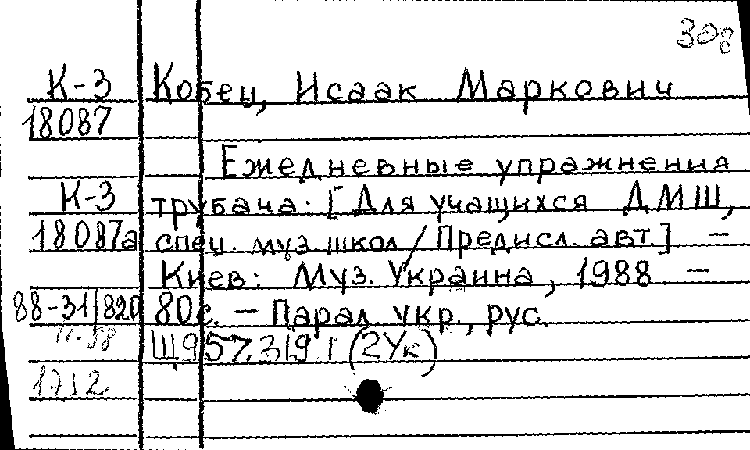 308
К-3 Кобец, Исаак Маркович
18087
Ежедневные упражнения
К-3 трубача. [Для учащихся ДМШ,
18087а спец. муз. школ / Предисл. авт.] –
Киев: Муз. Украина, 1988 –
88-31/820 80с. – Парал. укр., рус.
11.88 Щ957.319.1 (2Ук)
1712